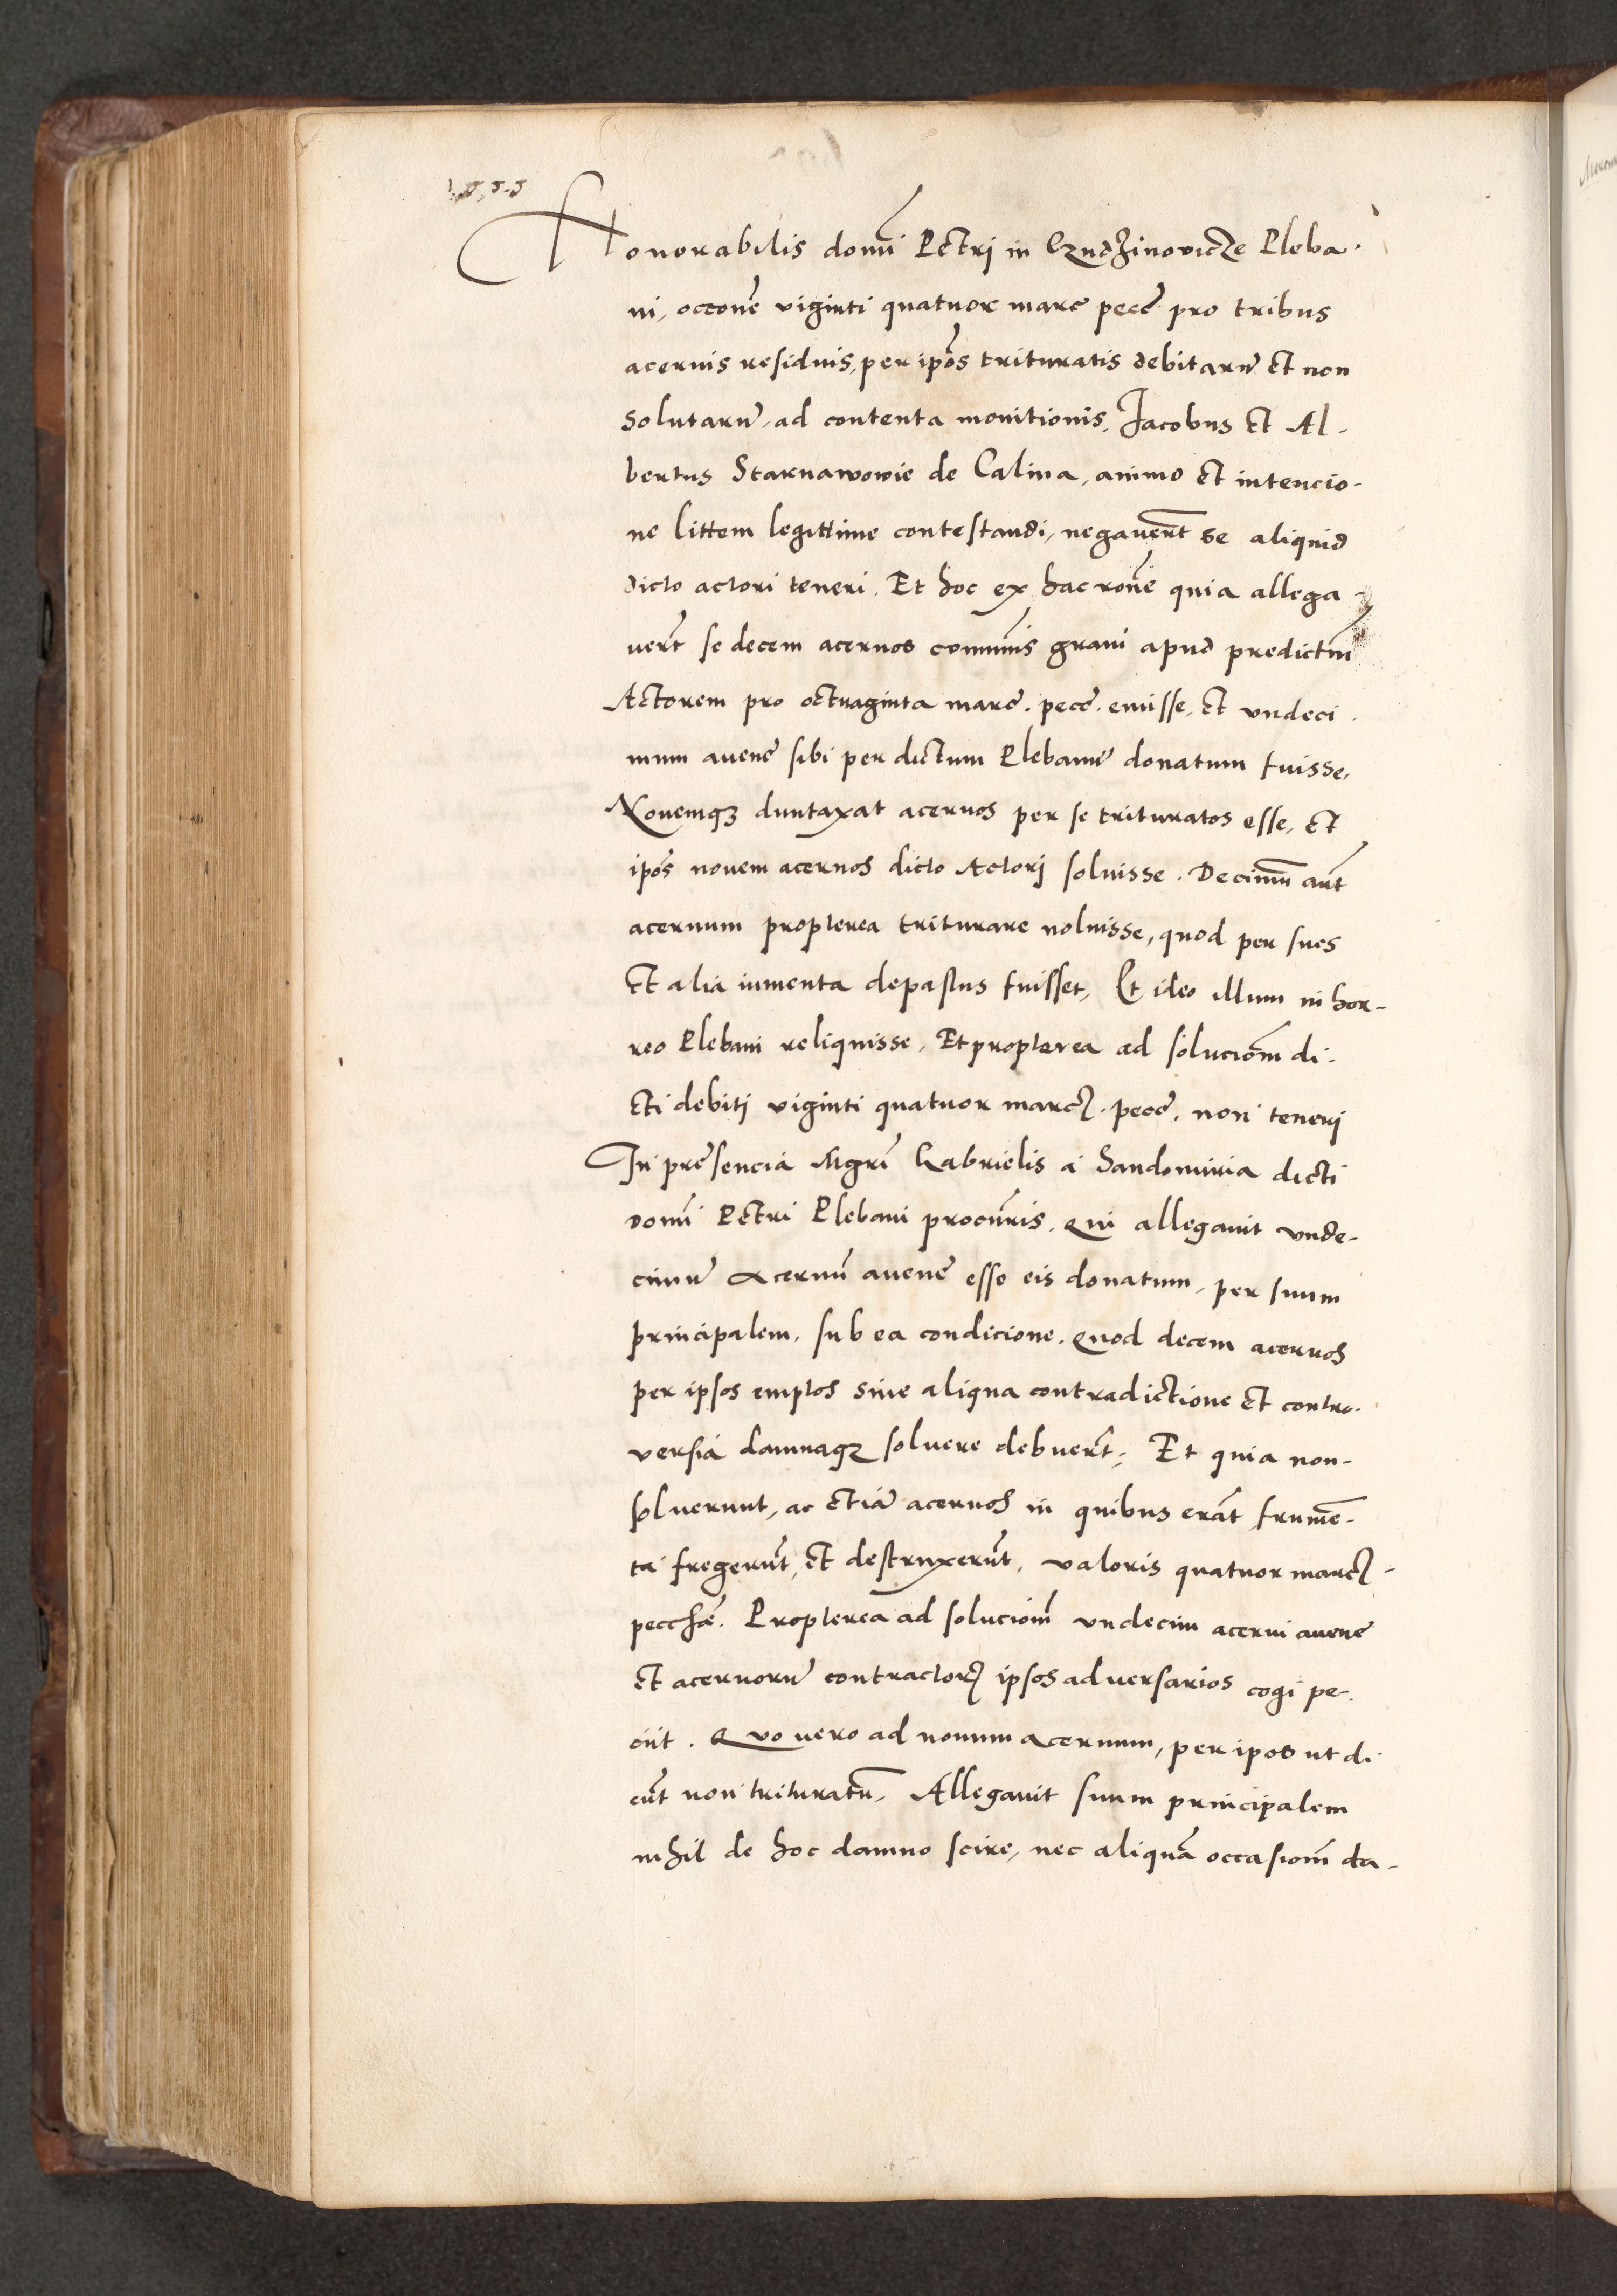 Honorabilis domī Petri in Czudzinovicze Pleba-
ni, occonē viginti quatuor marc pecē pro tribus
aceruis residuis, per ipōs trituratis debitarū et non
solutarū, ad contenta monitionis, Jacobus et Al-
bertus Starnawowie de Calina, animo et intencio-
ne littem legittime contestandi, negauerūt se aliquid
dicto actori teneri. Et hoc ex hac ronē quia allega-
uerūt se decem aceruos comunīs grani apud predictum
Actorem pro octuaginta marc. pecē. emisse, et vndeci-
mum auenē sibi per dictum Plebanū donatum fuisse,
Nouemqꝫ duntaxat aceruos per se trituratos esse, et
ipōs nouem aceruos dicto Actorj soluisse. Decimū aūt
aceruum propterea triturare noluisse, quod per sues
et alia iumenta depastus fuisset, Et ideo illum in hor-
reo Plebani reliquisse, Et propterea ad solucionē di-
cti debitj viginti quatuor marcꝫ. pecē. non tenerj
In presencia Mgrī Gabrielis a Sandomiria dicti
domī Petri Plebani procurīs. Qui allegauit vnde-
cimū aceruū auenē esse eis donatum, per suum
principalem, sub ea condicione. quod decem aceruos
per ipsos emptos sine aliqua contradictione et contro-
versia damnaqꝫ soluere debuerūt, Et quia non-
soluerunt, ac etiā aceruos in quibus erāt frumē-
ta fregerūt, et destruxerūt, valoris quatuor marcꝫ-
pecchē. Propterea ad solucionē vndecim acerui auenē
et aceruorū contractorꝫ ipsos aduersarios cogi pe-
ciit. Quo uero ad nonum aceruum, per ipos ut di-
cūt non trituratū, Allegauit suum principalem
nihil de hoc damno scire, nec aliquā occasionē da-